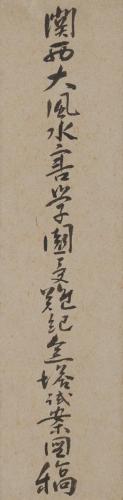 関西大風水害学園受難紀念塔試案図稿